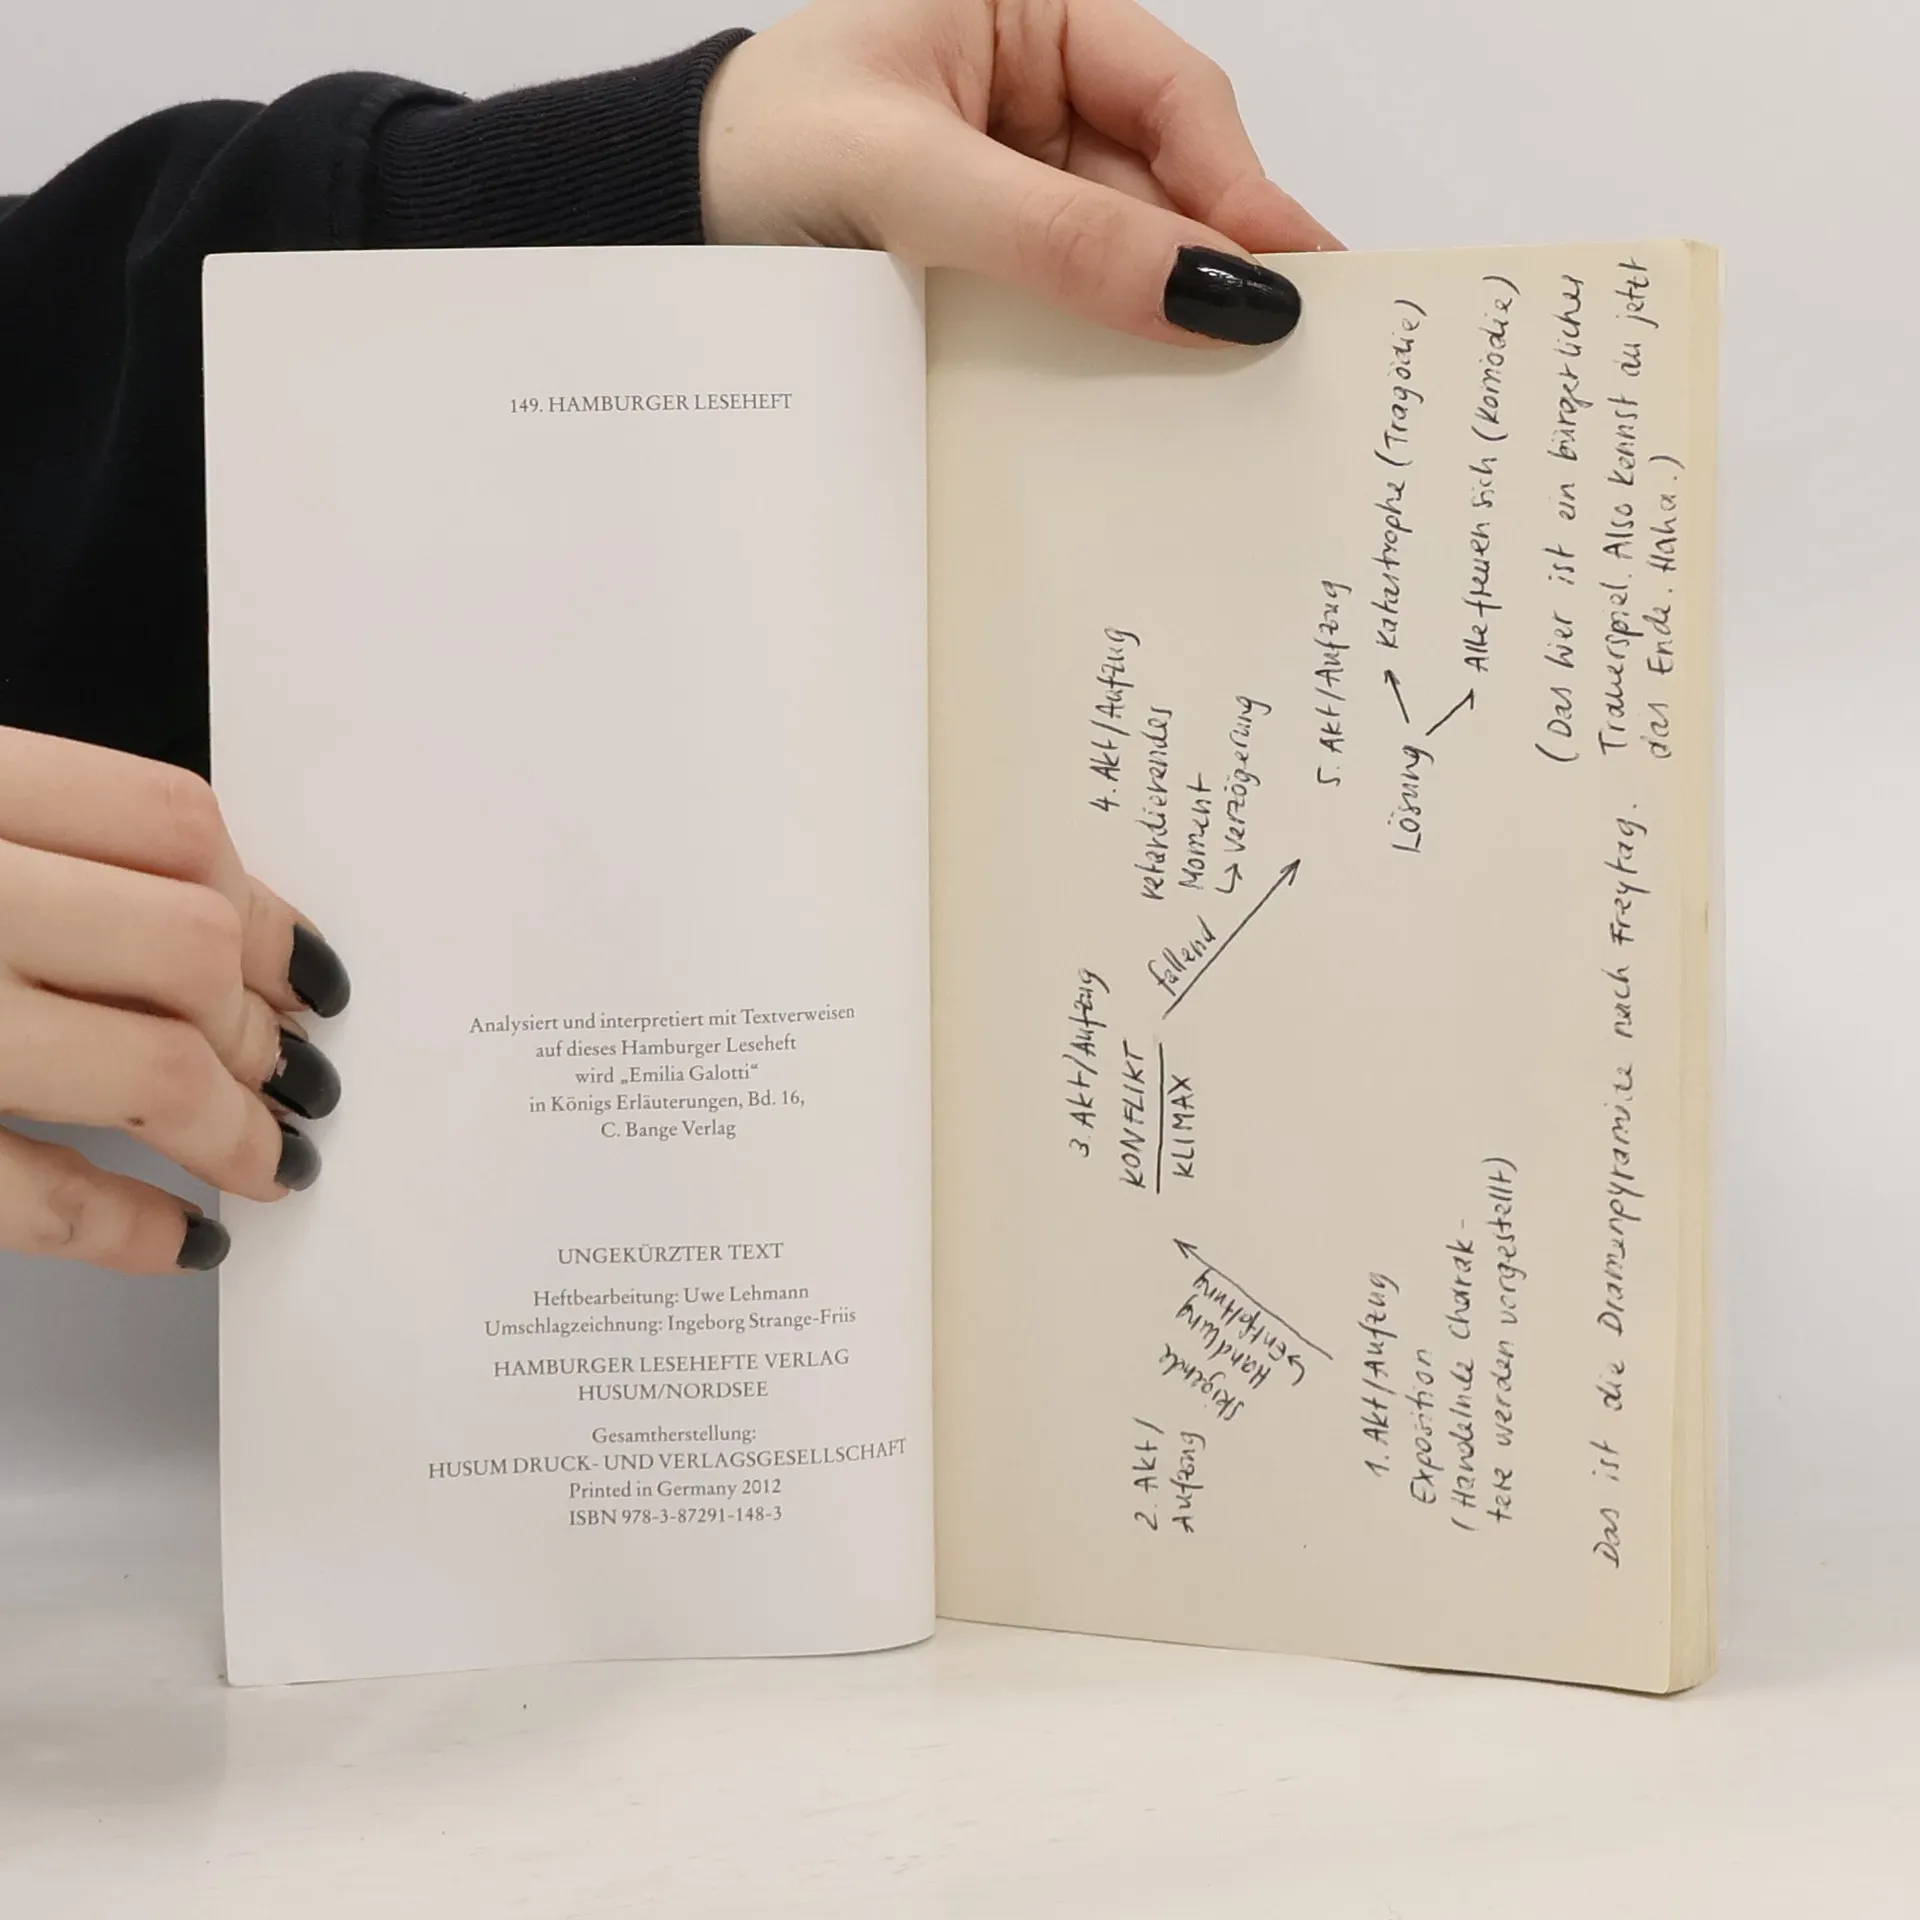 149. HAMBURGER LESEHEFT
Analysiert und interpretiert mit Textverweisen
auf dieses Hamburger Leseheft
wird „Emilia Galotti“
in Königs Erläuterungen, Bd. 16,
C. Bange Verlag
UNGEKÜRZTER TEXT
Heftbearbeitung: Uwe Lehmann
Umschlagzeichnung: Ingeborg Strange-Friis
HAMBURGER LESEHEFTE VERLAG
HUSUM/NORDSEE
Gesamtherstellung:
HUSUM DRUCK- UND VERLAGSGESELLSCHAFT
Printed in Germany 2012
ISBN 978-3-87291-148-3
3. Akt/Aufzug
KONFLIKT
KLIMAX
2. Akt/
Aufzug
steigende
Handlung
↳ Entfaltung
4. Akt/Aufzug
retardierendes
Moment
↳ Verzögerung
fallend
1. Akt/Aufzug
Exposition
(Handelnde Charak-
tere werden vorgestellt)
5. Akt/Aufzug
Lösung → Katastrophe (Tragödie)
→ Alle freuen sich (Komödie)
(Das hier ist ein bürgerliches
Trauerspiel. Also kennst du jetzt
das Ende. Haha.)
Das ist die Dramenpyramide nach Freytag.